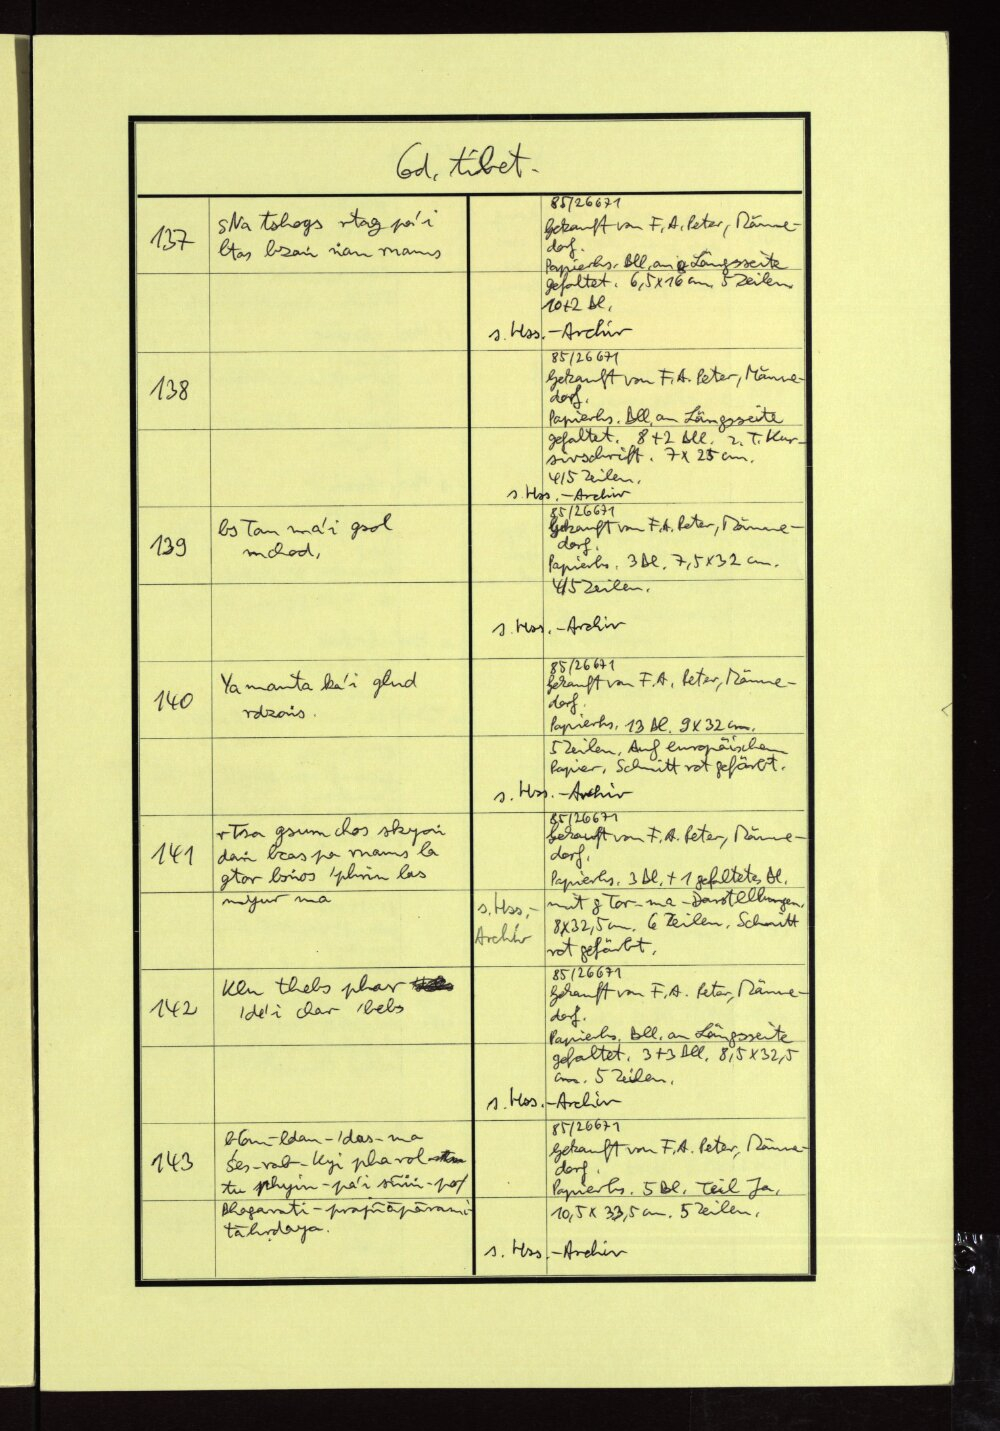 Cod. tibet.
137
sNa tshogs rtag pa'i
ltas bzaṅ ṅan rnams
85/26671
Gekauft von F. A. Peter, Männe-
dorf.
Papierhs. Bll. an Längsseite
gefaltet. 6,5 x 16 cm. 5 Zeilen.
10+2 Bl.
s. Hss.-Archiv
138
85/26671
Gekauft von F. A. Peter, Männe-
dorf.
Papierhs. Bll. an Längsseite
gefaltet. 8+2 Bll. z. T. Kur-
sivschrift. 7 x 25 cm.
4/5 Zeilen.
s. Hss.-Archiv
139
bsTan ma'i gsol
mchod.
85/26671
Gekauft von F. A. Peter, Männe-
dorf.
Papierhs. 3 Bl. 7,5 x 32 cm.
4/5 Zeilen.
s. Hss.-Archiv
140
Yamanta ka'i glud
rdzoṅs.
85/26671
Gekauft von F. A. Peter, Männe-
dorf.
Papierhs. 13 Bl. 9 x 32 cm.
5 Zeilen. Auf europäischem
Papier, Schnitt rot gefärbt.
s. Hss.-Archiv
141
rTsa gsum chos skyoṅ
daṅ bcas pa rnams la
gtor bṅos 'phrin las
myur ma
85/26671
Gekauft von F. A. Peter, Männe-
dorf.
Papierhs. 3 Bl. + 1 gefaltetes Bl.
mit gTor-ma-Darstellungen.
8 x 32,5 cm. 6 Zeilen. Schnitt
rot gefärbt.
s. Hss.-
Archiv
142
Klu thebs phar
'de'i char 'bebs
85/26671
Gekauft von F. A. Peter, Männe-
dorf.
Papierhs. Bll. an Längsseite
gefaltet. 3+3 Bll. 8,5 x 32,5
cm. 5 Zeilen.
s. Hss.-Archiv
143
bCom-ldan-'das-ma
śes-rab-kyi pha rol
tu phyin-pa'i sñiṅ-po/
Bhagavati-prajñāpārami-
tāhṛdaya.
85/26671
Gekauft von F. A. Peter, Männe-
dorf.
Papierhs. 5 Bl. Teil Ja.
10,5 x 33,5 cm. 5 Zeilen.
s. Hss.-Archiv